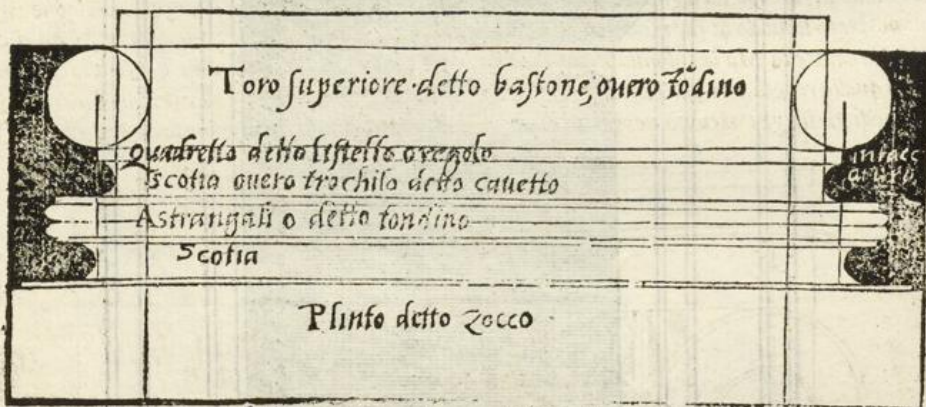 Toro superiore·detto bastone, overo tõdino
Quadretto detto listello o regolo
Scotia overo trochilo detto cavetto
Astrangali o detto tondino
Scotia
Plinto detto zocco